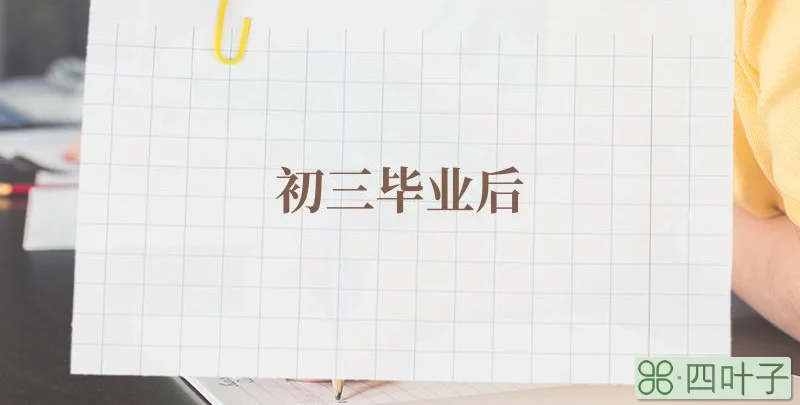 初三毕业后
⌘·四叶子